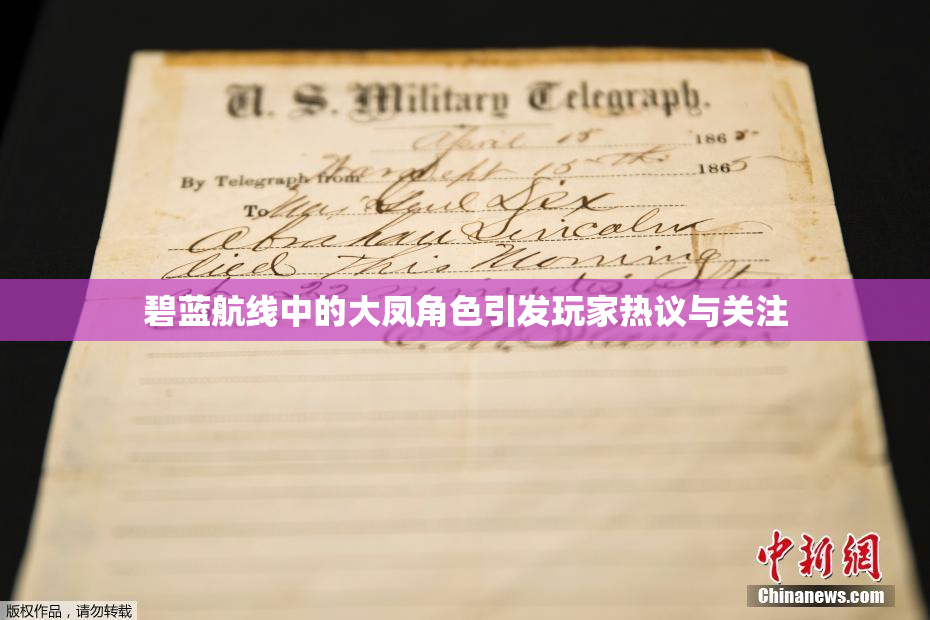 U. S. Military Telegraph.
April 15 1865
By Telegraph from War Dept 15th 1865
To Maj Genl Dix
Abraham Lincoln
died This Morning
at 22 minutes after
碧蓝航线中的大凤角色引发玩家热议与关注
E. M. Stanton
中新网
Chinanews.com
版权作品，请勿转载